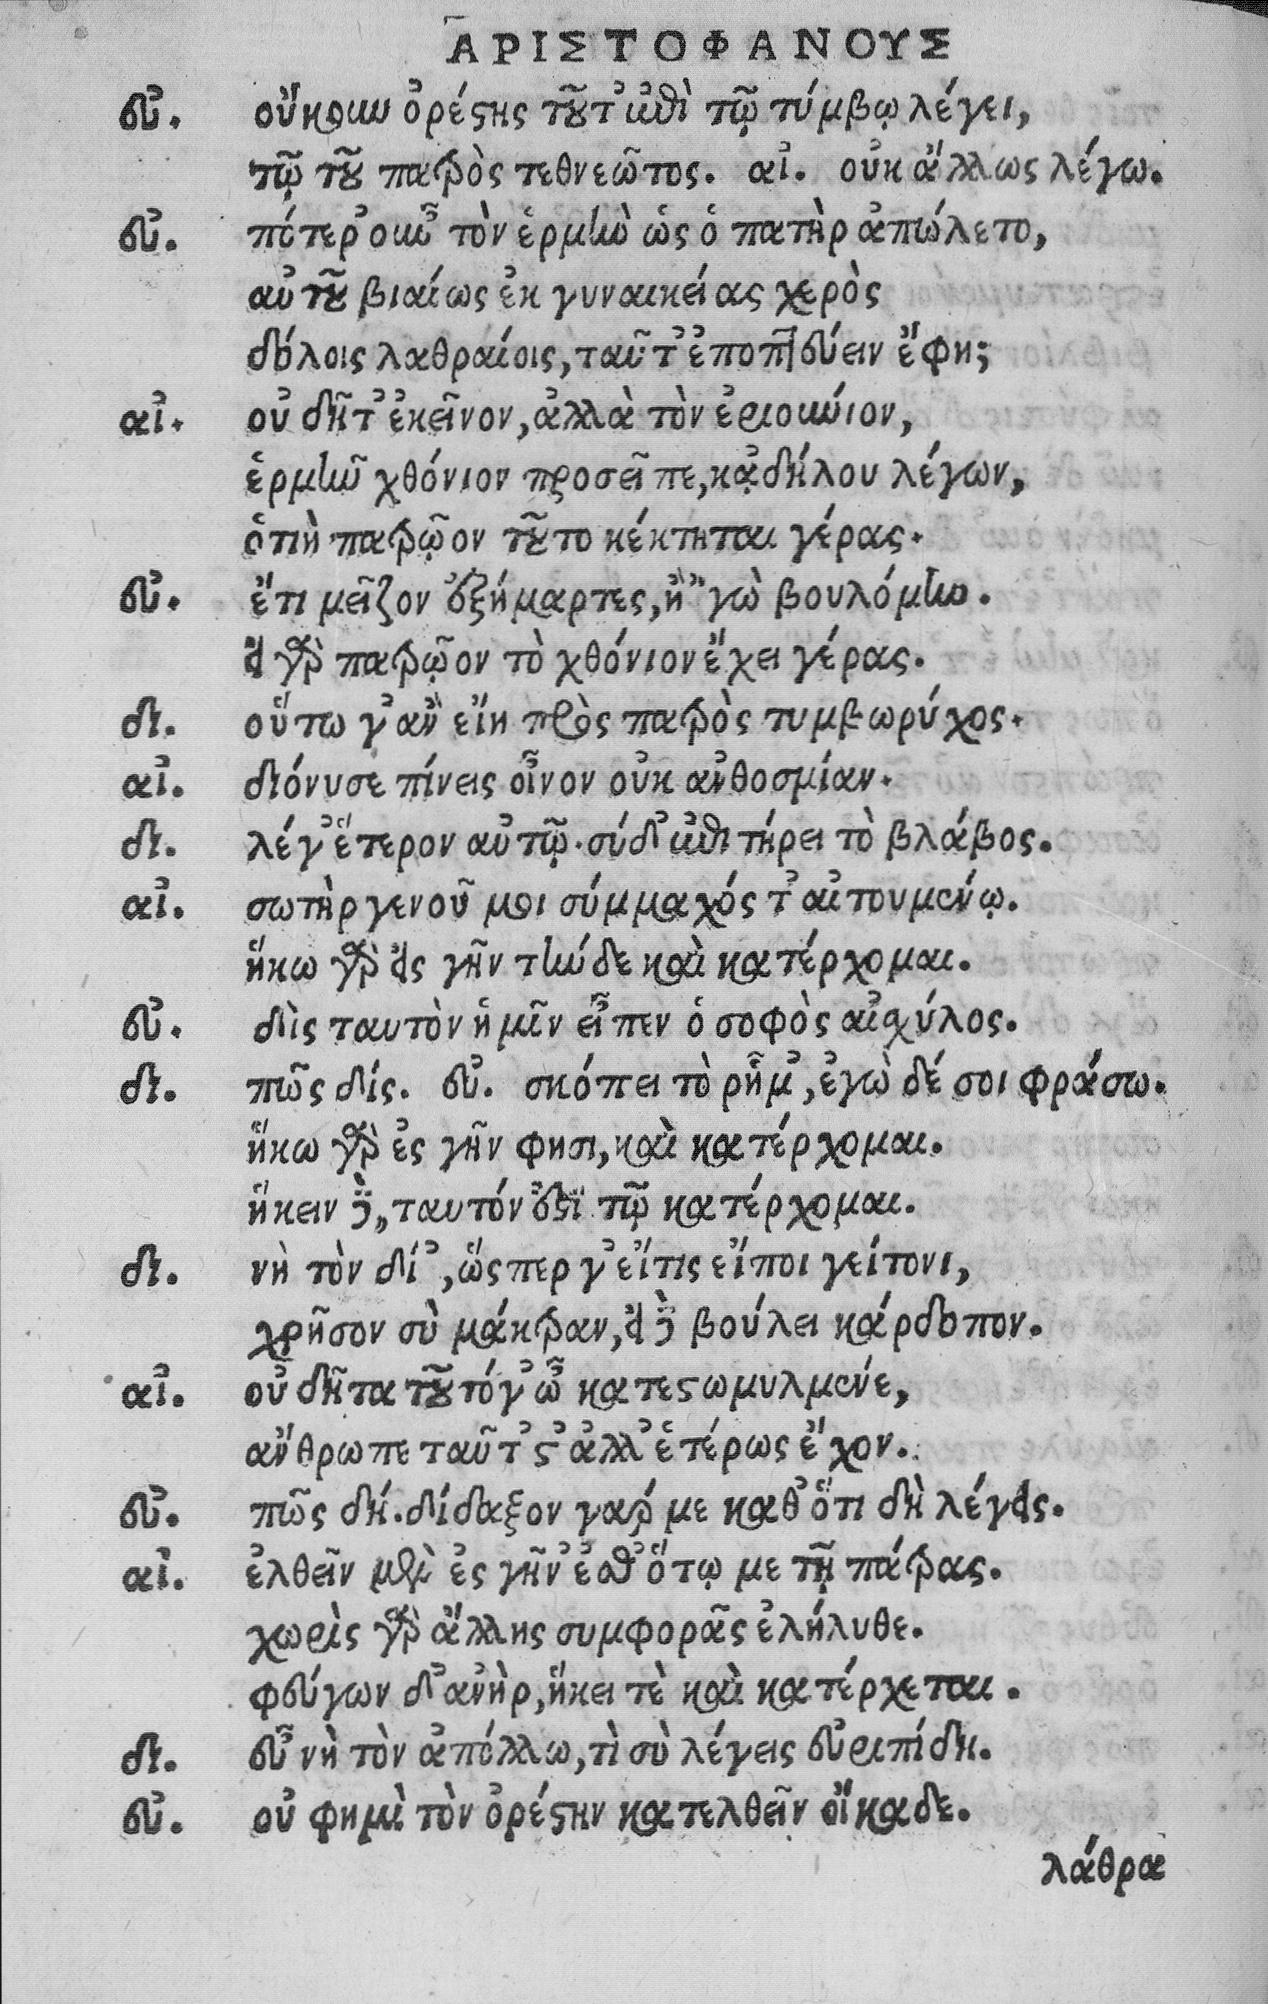 ΑΡΙΣΤΟΦΑΝΟΥΣ
ευ. οὔκουν ὀρέστης τοῦτ' ἐπὶ τῷ τύμβῳ λέγει,
τῷ τοῦ πατρὸς τεθνεῶτος. αἰ. οὐκ ἄλλως λέγω.
ευ. πότερ' οὖν τὸν ἑρμῆν ὡς ὁ πατὴρ ἀπώλετο,
αὐτοῦ βιαίως ἐκ γυναικείας χερὸς
δόλοις λαθραίοις, ταῦτ' ἐποπτεύειν ἔφη;
αἰ. οὐ δῆτ' ἐκεῖνον, ἀλλὰ τὸν ἐριούνιον,
ἑρμῆν χθόνιον προσεῖπε, κᾀδήλου λέγων,
ὁτιὴ πατρῷον τοῦτο κέκτηται γέρας.
ευ. ἔτι μεῖζον ἐξήμαρτες, ἢ 'γὼ βουλόμην.
εἰ γὰρ πατρῷον τὸ χθόνιον ἔχει γέρας.
δι. οὕτω γ' ἂν εἴη πρὸς πατρὸς τυμβωρύχος.
αἰ. διόνυσε πίνεις οἶνον οὐκ ἀνθοσμίαν.
δι. λέγ' ἕτερον αὐτῷ. σὺ δ' ἐπιτήρει τὸ βλάβος.
αἰ. σωτὴρ γενοῦ μοι σύμμαχός τ' αἰτουμένῳ.
ἥκω γὰρ εἰς γῆν τήνδε καὶ κατέρχομαι.
ευ. δὶς ταυτὸν ἡμῖν εἶπεν ὁ σοφὸς αἰσχύλος.
δι. πῶς δίς. ευ. σκόπει τὸ ρῆμ', ἐγὼ δέ σοι φράσω.
ἥκω γὰρ ἐς γῆν φησι, καὶ κατέρχομαι.
ἥκειν δὲ, ταυτόν ἐστι τῷ κατέρχομαι.
δι. νὴ τὸν δί', ὥσπερ γ' εἴτις εἴποι γείτονι,
χρῆσον σὺ μάκτραν, εἰ δὲ βούλει κάρδοπον.
αἰ. οὐ δῆτα τοῦτό γ' ὦ κατεστωμυλμένε,
ἄνθρωπε ταῦτ' ἔστ' ἀλλ' ἑτέρως ἔχον.
ευ. πῶς δή. δίδαξον γάρ με καθ' ὅτι δὴ λέγεις.
αἰ. ἐλθεῖν μὲν ἐς γῆν ἔσθ' ὅτῳ με τῇ πάτρας.
χωρὶς γὰρ ἄλλης συμφορᾶς ἐλήλυθε.
φεύγων δ' ἀνὴρ, ἥκει τὲ καὶ κατέρχεται.
δι. εὖ νὴ τὸν ἀπόλλω, τὶ σὺ λέγεις εὐριπίδη.
ευ. οὐ φημὶ τὸν ὀρέστην κατελθεῖν οἴκαδε.
λάθρα